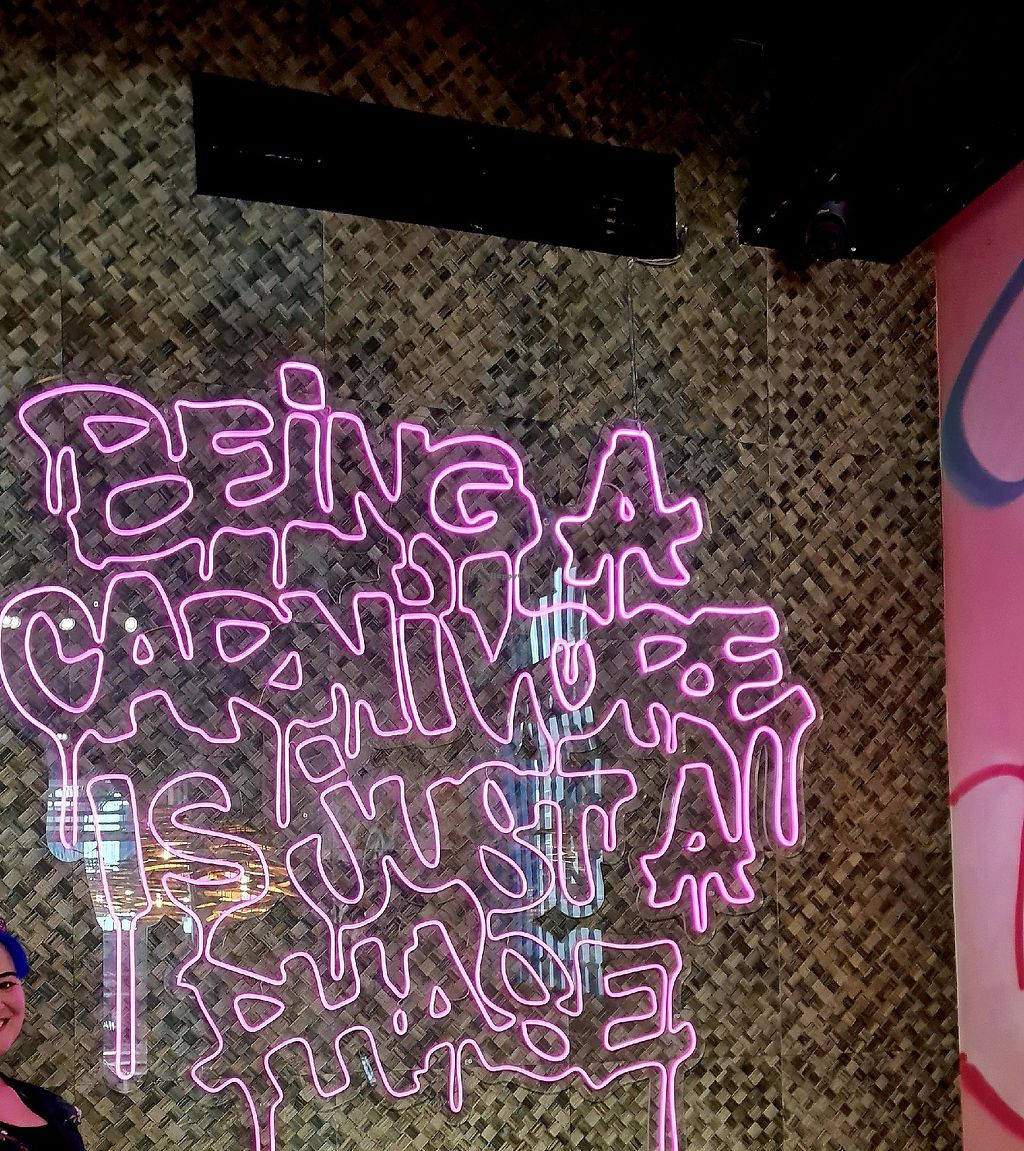 BEING A
CARNIVORE
IS JUST A
PHASE